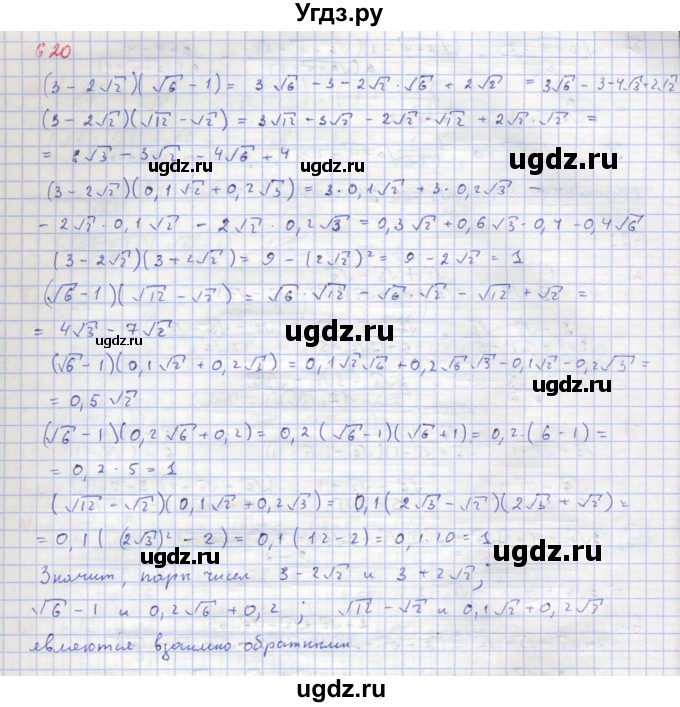 Угдз.ру
620
(3 - 2√2)(√6 - 1) = 3√6 - 3 - 2√2 · √6 + 2√2 = 3√6 - 3 - 4√3 + 2√2
(3 - 2√2)(√12 - √2) = 3√12 - 3√2 - 2√2 · √12 + 2√2 · √2 =
= 2√3 - 3√2 - 4√6 + 4
ugdz.ru ugdz.ru
(3 - 2√2)(0,1√2 + 0,2√3) = 3 · 0,1√2 + 3 · 0,2√3 -
- 2√2 · 0,1√2 - 2√2 · 0,2√3 = 0,3√2 + 0,6√3 - 0,4 - 0,4√6
(3 - 2√2)(3 + 2√2) = 9 - (2√2)² = 9 - 2√2 = 1
(√6 - 1)(√12 - √2) = √6 · √12 - √6 · √2 - √12 + √2 =
= 4√3 - 7√2
ugdz.ru ugdz.ru
(√6 - 1)(0,1√2 + 0,2√3) = 0,1√2√6 + 0,2√6√3 - 0,1√2 - 0,2√3 =
= 0,5√2
ugdz.ru
(√6 - 1)(0,2√6 + 0,2) = 0,2(√6 - 1)(√6 + 1) = 0,2 · (6 - 1) =
= 0,2 · 5 = 1
ugdz.ru
(√12 - √2)(0,1√2 + 0,2√3) = 0,1(2√3 - √2)(2√3 + √2) =
= 0,1((2√3)² - 2) = 0,1(12 - 2) = 0,1 · 10 = 1
ugdz.ru ugdz.ru
Значит, пары чисел 3 - 2√2 и 3 + 2√2;
√6 - 1 и 0,2√6 + 0,2; √12 - √2 и 0,1√2 + 0,2√3
являются взаимно обратными.
ugdz.ru